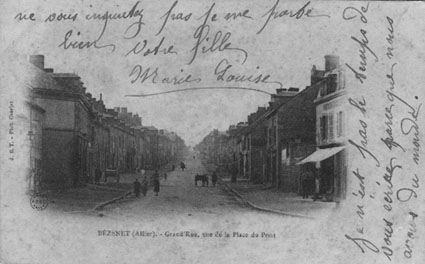 ne vous inquietez pas je me porte
bien Votre fille
Marie Louise
je n'ai pas le temps de
vous écrire parce que nous
avons du monde.
BÉZENET (Allier). - Grand'Rue, vue de la Place du Pont